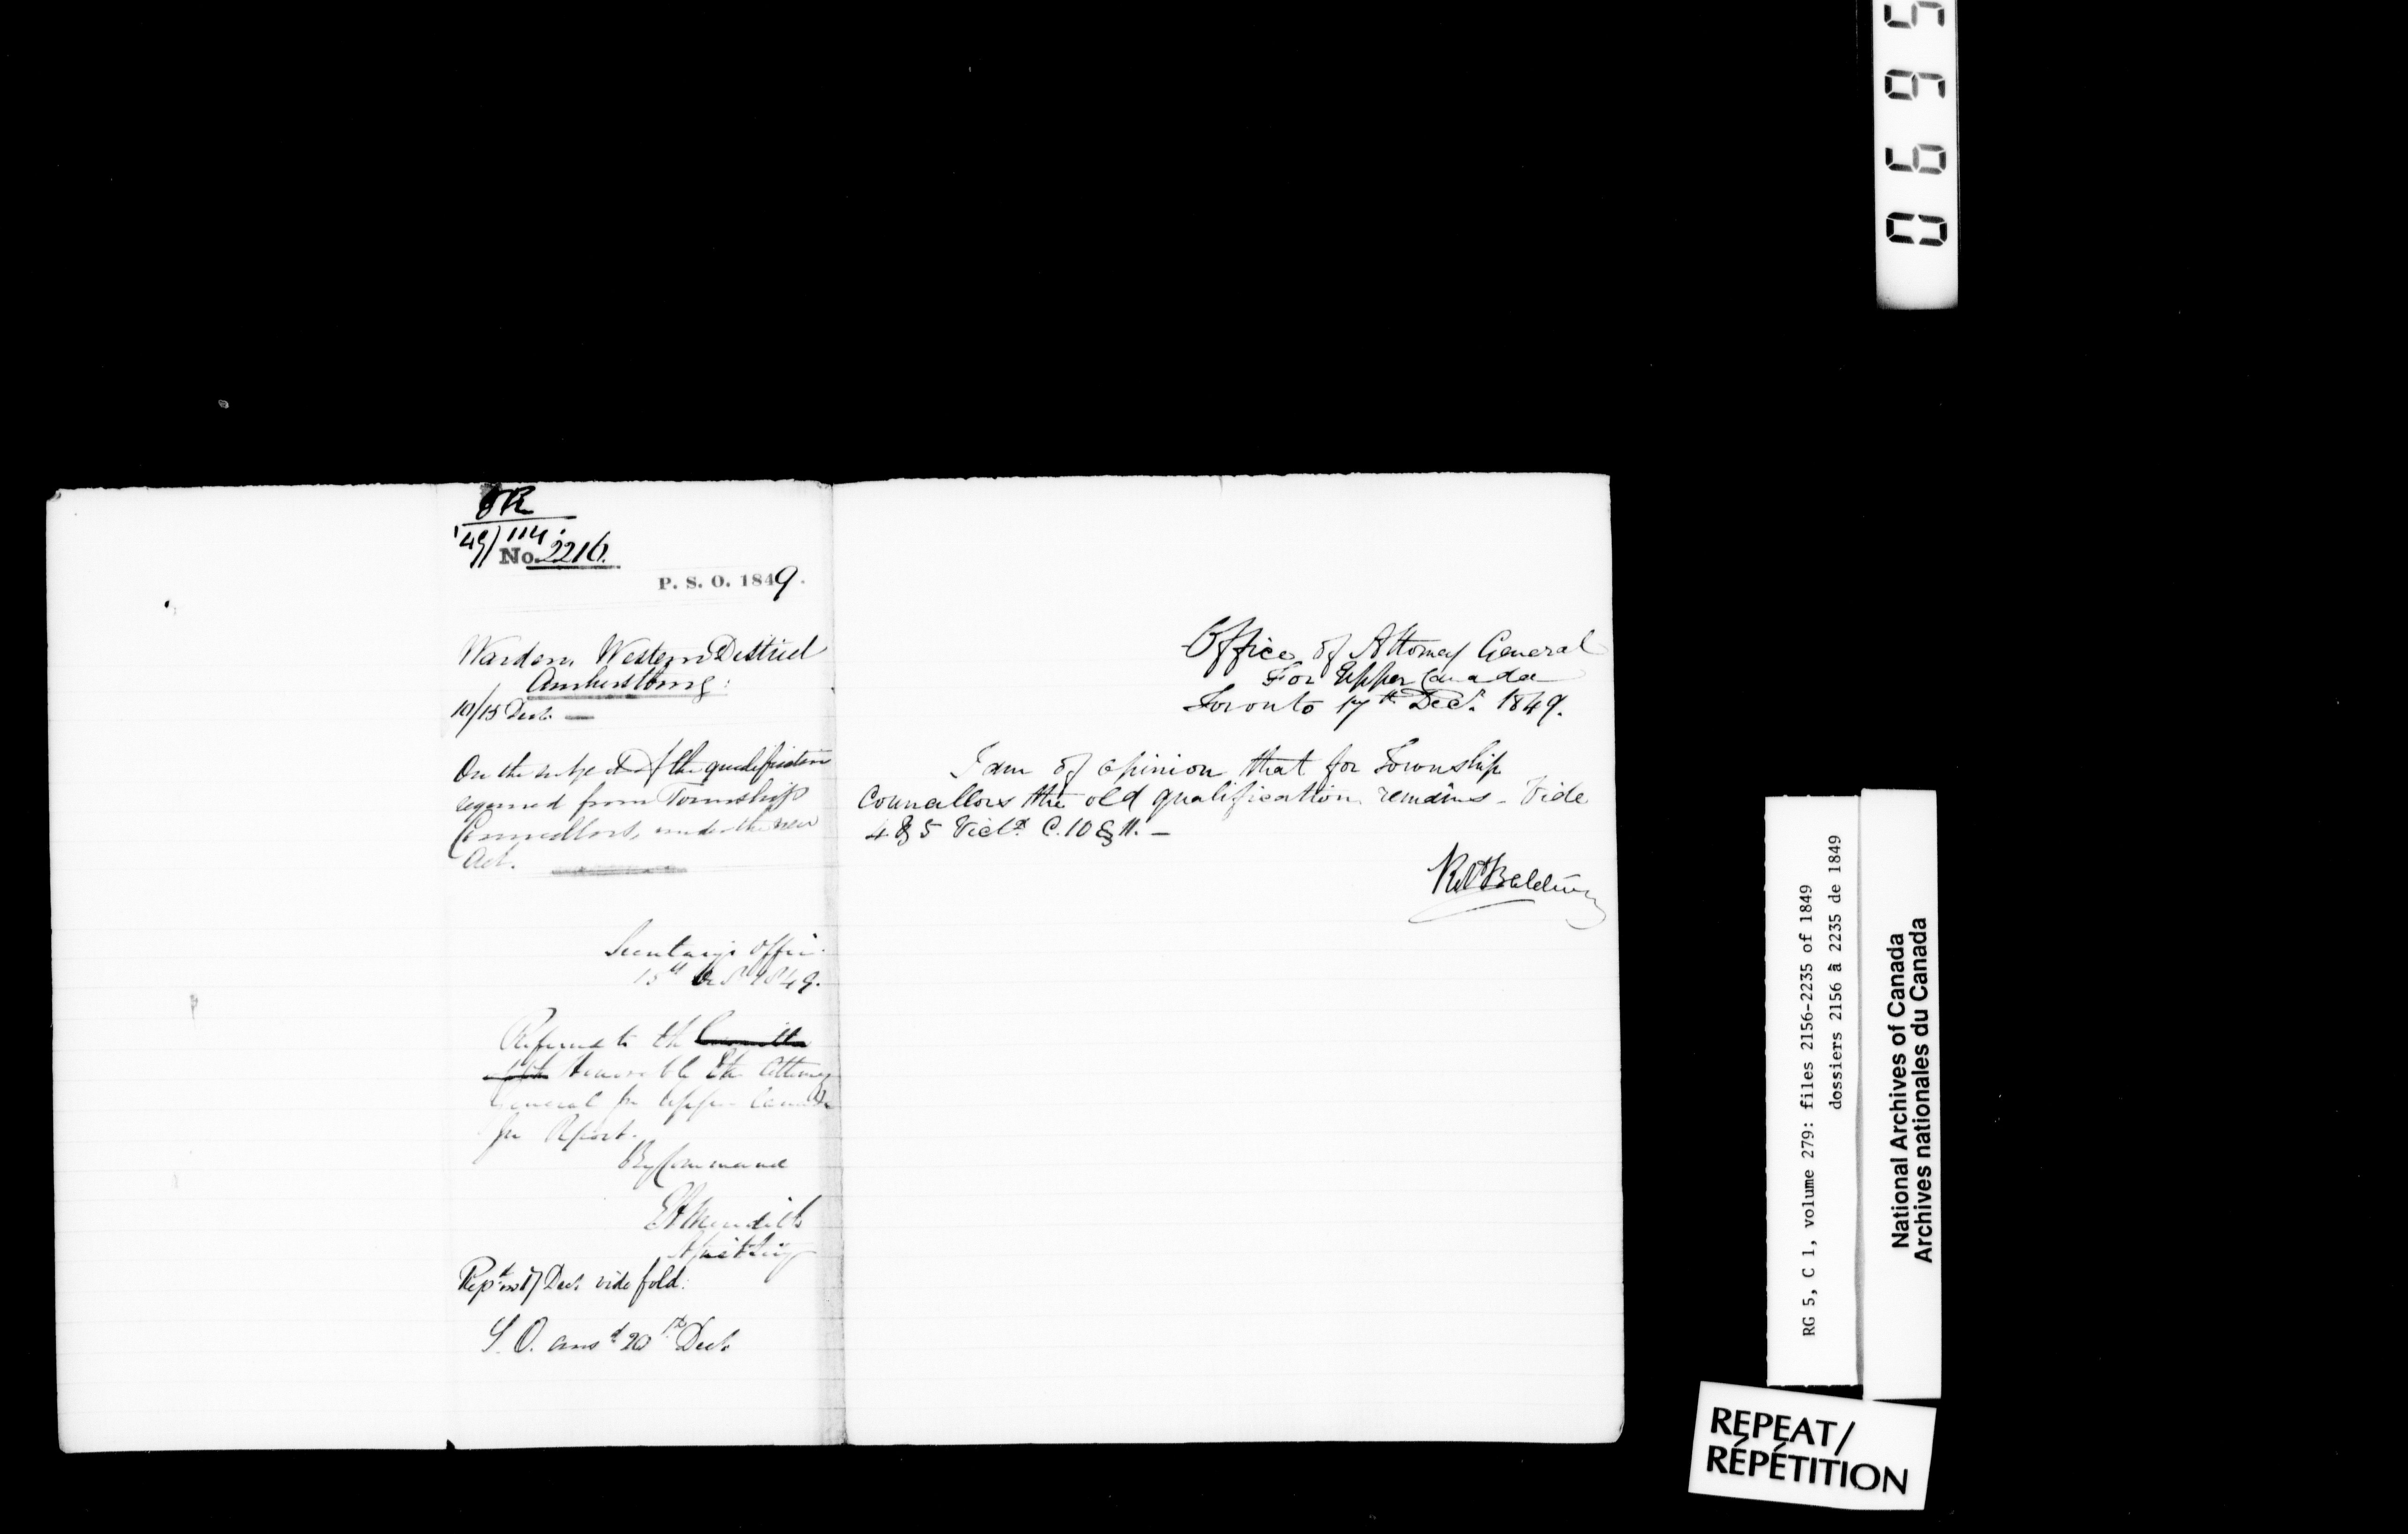 JR
'49/1141
No. 2216.
P. S. O. 1849.
Warden, Western District
Amherstburg:
10/15 Decr. —
On the subject of the qualification
required from Township
Councillors, under the new
Act.
Secretary's Office
15th Decr 1849.
Referred to the Committee
of the Honorable The Attorney
General for Upper Canada
for Report.
By Command
EA Meredith
Asst Secy
Repd on 17 Decr vide fold.
S. O. ansd 20th Decr
Office of Attorney General
For Upper Canada
Toronto 17th Decr. 1849.
I am of opinion that for Township
Councellors the old qualification remains - Vide
4 & 5 Victa C. 10 & 11. —
Robt Baldwin
0695
RG 5, C 1, volume 279: files 2156-2235 of 1849
dossiers 2156 à 2235 de 1849
National Archives of Canada
Archives nationales du Canada
REPEAT/
RÉPÉTITION